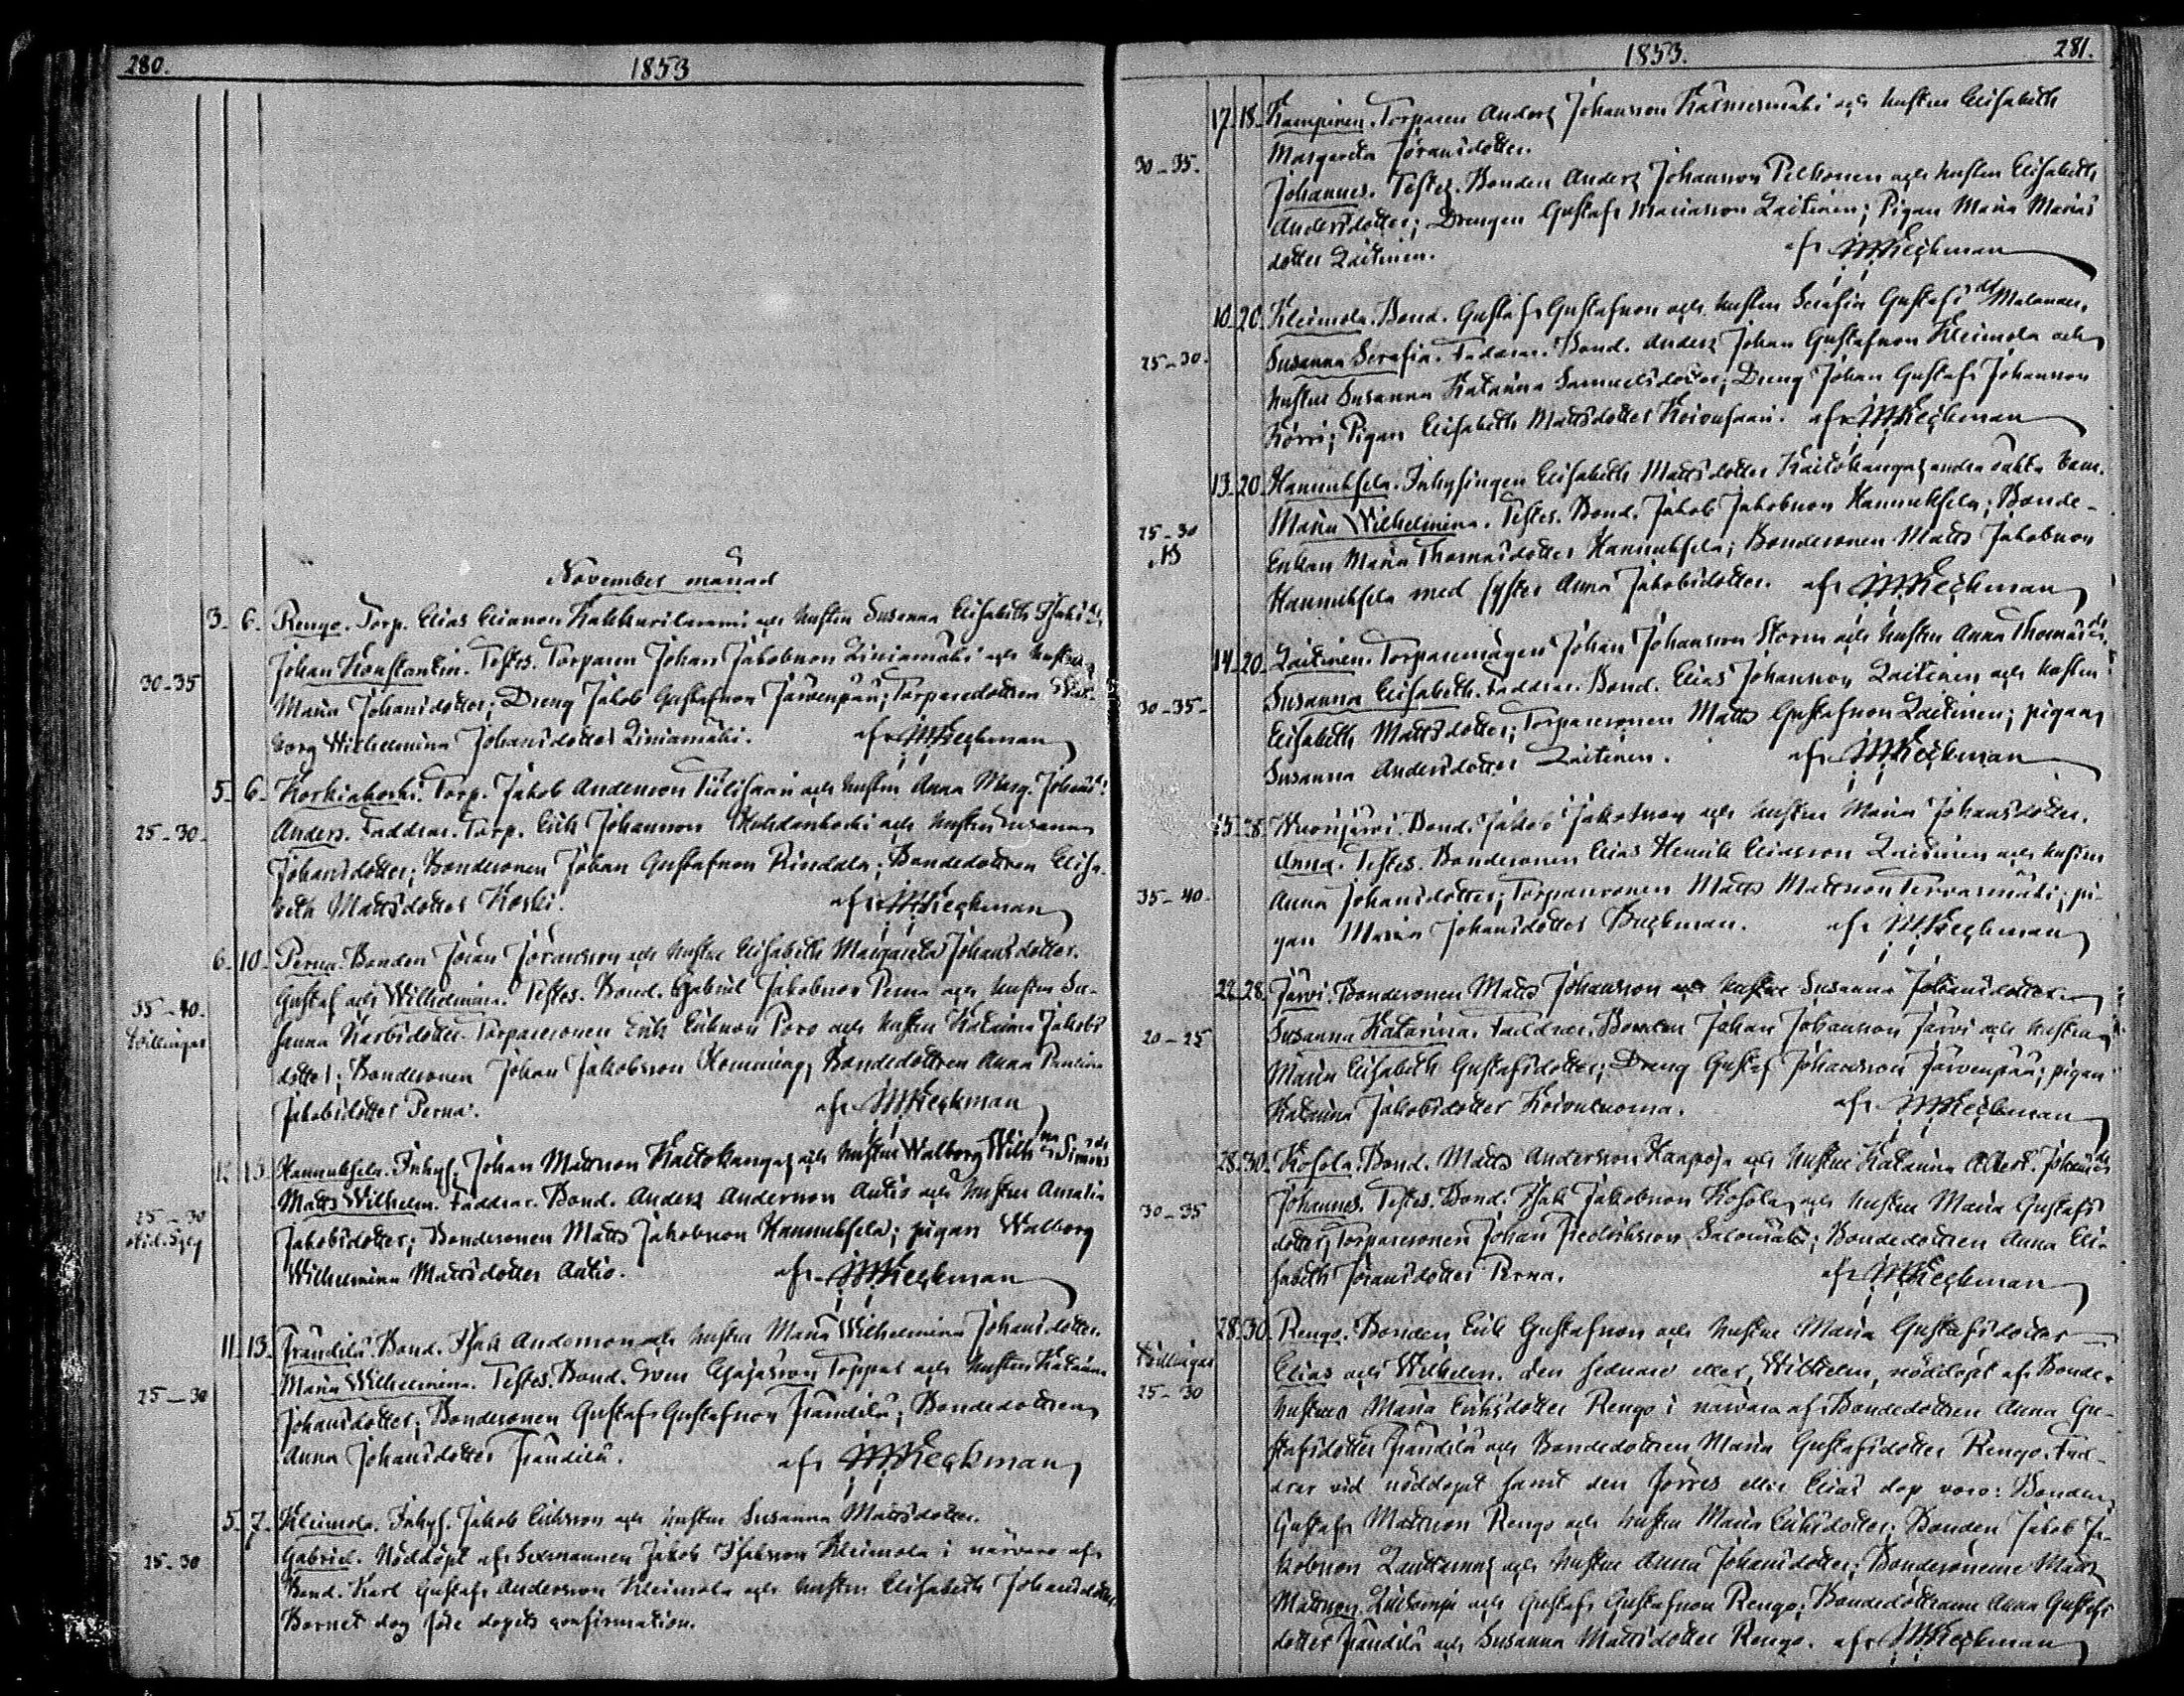 280.
1853
November månad
3. 6. Rengo. Torp. Elias Eliasson Kakkurilammi och hustru Susanna Elisabeth Isaksdr
Johan Konstantin. Testes. Torparen Johan Jakobsson Liniamäki och hustru
30-35
Maria Johansdotter; Dreng Jakob Gustafsson Järvenpää; Torparedottren Wal-
borg Wilhelmina Johansdotter Liniamäki. af M Heckman
5. 6. Koskiakoski. Torp. Jakob Andersson Tiilisaari och hustru Anna Marg. Johansd:
25-30.
Anders. Faddrar. Torp. Erik Johansson och hustru Susanna
Johansdotter; Bondesonen Johan Gustafsson Rindala; Bondedottren Elisa-
beth Mattsdotter Koski. af M Heckman
6. 10. Perna. Bonden Jöran Göransson och hustru Elisabeth Margareta Johansdotter.
35-40.
Tvillingar
Gustaf och Wilhelmina. Testes. Bond. Gabriel Jakobsson Perna och hustru Su-
sanna dotter. Torparesonen Erik Eriksson Poro och hustru Katarina Jakobs
dotter; Bondesonen Johan Jakobsson Hemming, Bondedottren Anna Paulina
Jakobsdotter Perna. af M Heckman
12. 13. Hannuksela. Inhys. Johan Mattsson Kaitokangas och hustru Walborg Wilhna Simonsdr
25-30
Matts Wilhelm. Faddrar. Bond. Anders Andersson Antio och hustru Amalia
Jakobsdotter; Bondesonen Matts Jakobsson Hannuksela; pigan Walborg
Wilhelmina Mattsdotter Antio. af M Heckman
11. 13. Frändilä. Bond. Isak Andersson och hustru Maria Wilhelmina Johansdotter.
25-30
Maria Wilhelmina. Testes. Bond. Sven Esajasson Toppar och hustru Katarina
Johansdotter; Bondesonen Gustaf Gustafsson Frändilä; Bondedottren
Anna Johansdotter Frändilä. af M Heckman
5. 7. Kleimola. Inhys. Jakob Eriksson och hustru Susanna Mattsdotter.
25-30
Gabriel. Nöddöpt af Sexmannen Jakob Isaksson Kleimola i närvaro af
Bond. Karl Gustaf Andersson Kleimola och hustru Elisabeth Johansdotter.
Barnet dog före dopets confirmation.
1853.
281.
17. 18. Kampinen. Torparen Anders Johansson Kärmesmäki och hustru Elisabeth
Margareta Göransdotter.
30-35.
Johannes. Testes. Bonden Anders Johansson Pelkonen och hustru Elisabeth
Andersdotter; Drengen Gustaf Mariasson Laitinen; Pigan Maria Marias
dotter Laitinen. af M Heckman
10. 20. Kleimola. Bond. Gustaf Gustafsson och hustru Serafia Gustafsdr Malander.
25-30.
Susanna Serafia. Faddrar. Bond. Anders Johan Gustafsson Kleimola och
hustru Susanna Katarina Samuelsdotter; Dreng Johan Gustaf Johansson
Körri; Pigan Elisabeth Mattsdotter Koivusaari. af M Heckman
13. 20. Hannuksela. Inhysingen Elisabeth Mattsdotter Kaitokangas andra oäkta barn.
25-30
Maria Wilhelmina. Testes. Bond. Jakob Jakobsson Hannuksela; Bonde-
Enkan Maria Thomasdotter Hannuksela; Bondesonen Matts Jakobsson
Hannuksela med syster Anna Jakobsdotter. af M Heckman
14. 20. Laitinen. Torparemågen Johan Johansson Storm och hustru Anna Thomasdr.
30-35-
Susanna Elisabeth. Faddrar. Bond. Elias Johansson Laitinen och hustru
Elisabeth Mattsdotter; Torparesonen Matts Gustafsson Laitinen; pigan
Susanna Andersdotter Laitinen. af M Heckman
25. 28. Kuorijärvi. Bond. Jakob Jakobsson och hustru Maria Johansdotter.
35-40.
Anna. Testes. Bondesonen Elias Henrik Eliasson Laitinen och hustru
Anna Johansdotter; Torparesonen Matts Mattsson Tervasmäki; pi-
gan Maria Johansdotter Buckman. af M Heckman
22. 28. Järvi. Bondesonen Matts Johansson och hustru Susanna Johansdotter.
20-25
Susanna Katarina. Faddrar. Bonden Johan Johansson Järvi och hustru
Maria Elisabeth Gustafsdotter; Dreng Gustaf Johansson Järvenpää; pigan
Katarina Jakobsdotter Koivuluoma. af M Heckman
28. 30. Kohola. Bond. Matts Andersson Haapoja och hustru Katarina Albert. Johansdr
30-35
Johannes. Testes. Bond. Isak Jakobsson Kohola och hustru Maria Gustafs
dotter; Torparesonen Johan Fredriksson Salomäki; Bondedottren Anna Eli-
sabeth Göransdotter Perna. af M Heckman
28. 30. Rengo. Bonden Erik Gustafsson och hustru Maria Gustafsdotter
Tvillingar
25-30
Elias och Wilhelm. den sednare eller, Wilhelm, nöddöpt af Bonde-
hustrun Maria Eriksdotter Rengo i närvaro af Bondedottren Anna Gu-
stafsdotter Frändilä och Bondedottren Maria Gustafsdotter Rengo. Fad-
drar vid nöddopet samt den förres eller Elias dop voro: Bonden
Gustaf Mattsson Rengo och hustru Maria Eriksdotter; Bonden Jakob Ja-
kobsson Lauttamus och hustru Anna Johansdotter; Bondesönerne Matts
Mattsson och Gustaf Gustafsson Rengo; Bondedöttrarne Anna Gustafs
dotter Frändilä och Susanna Mattsdotter Rengo. af M Heckman